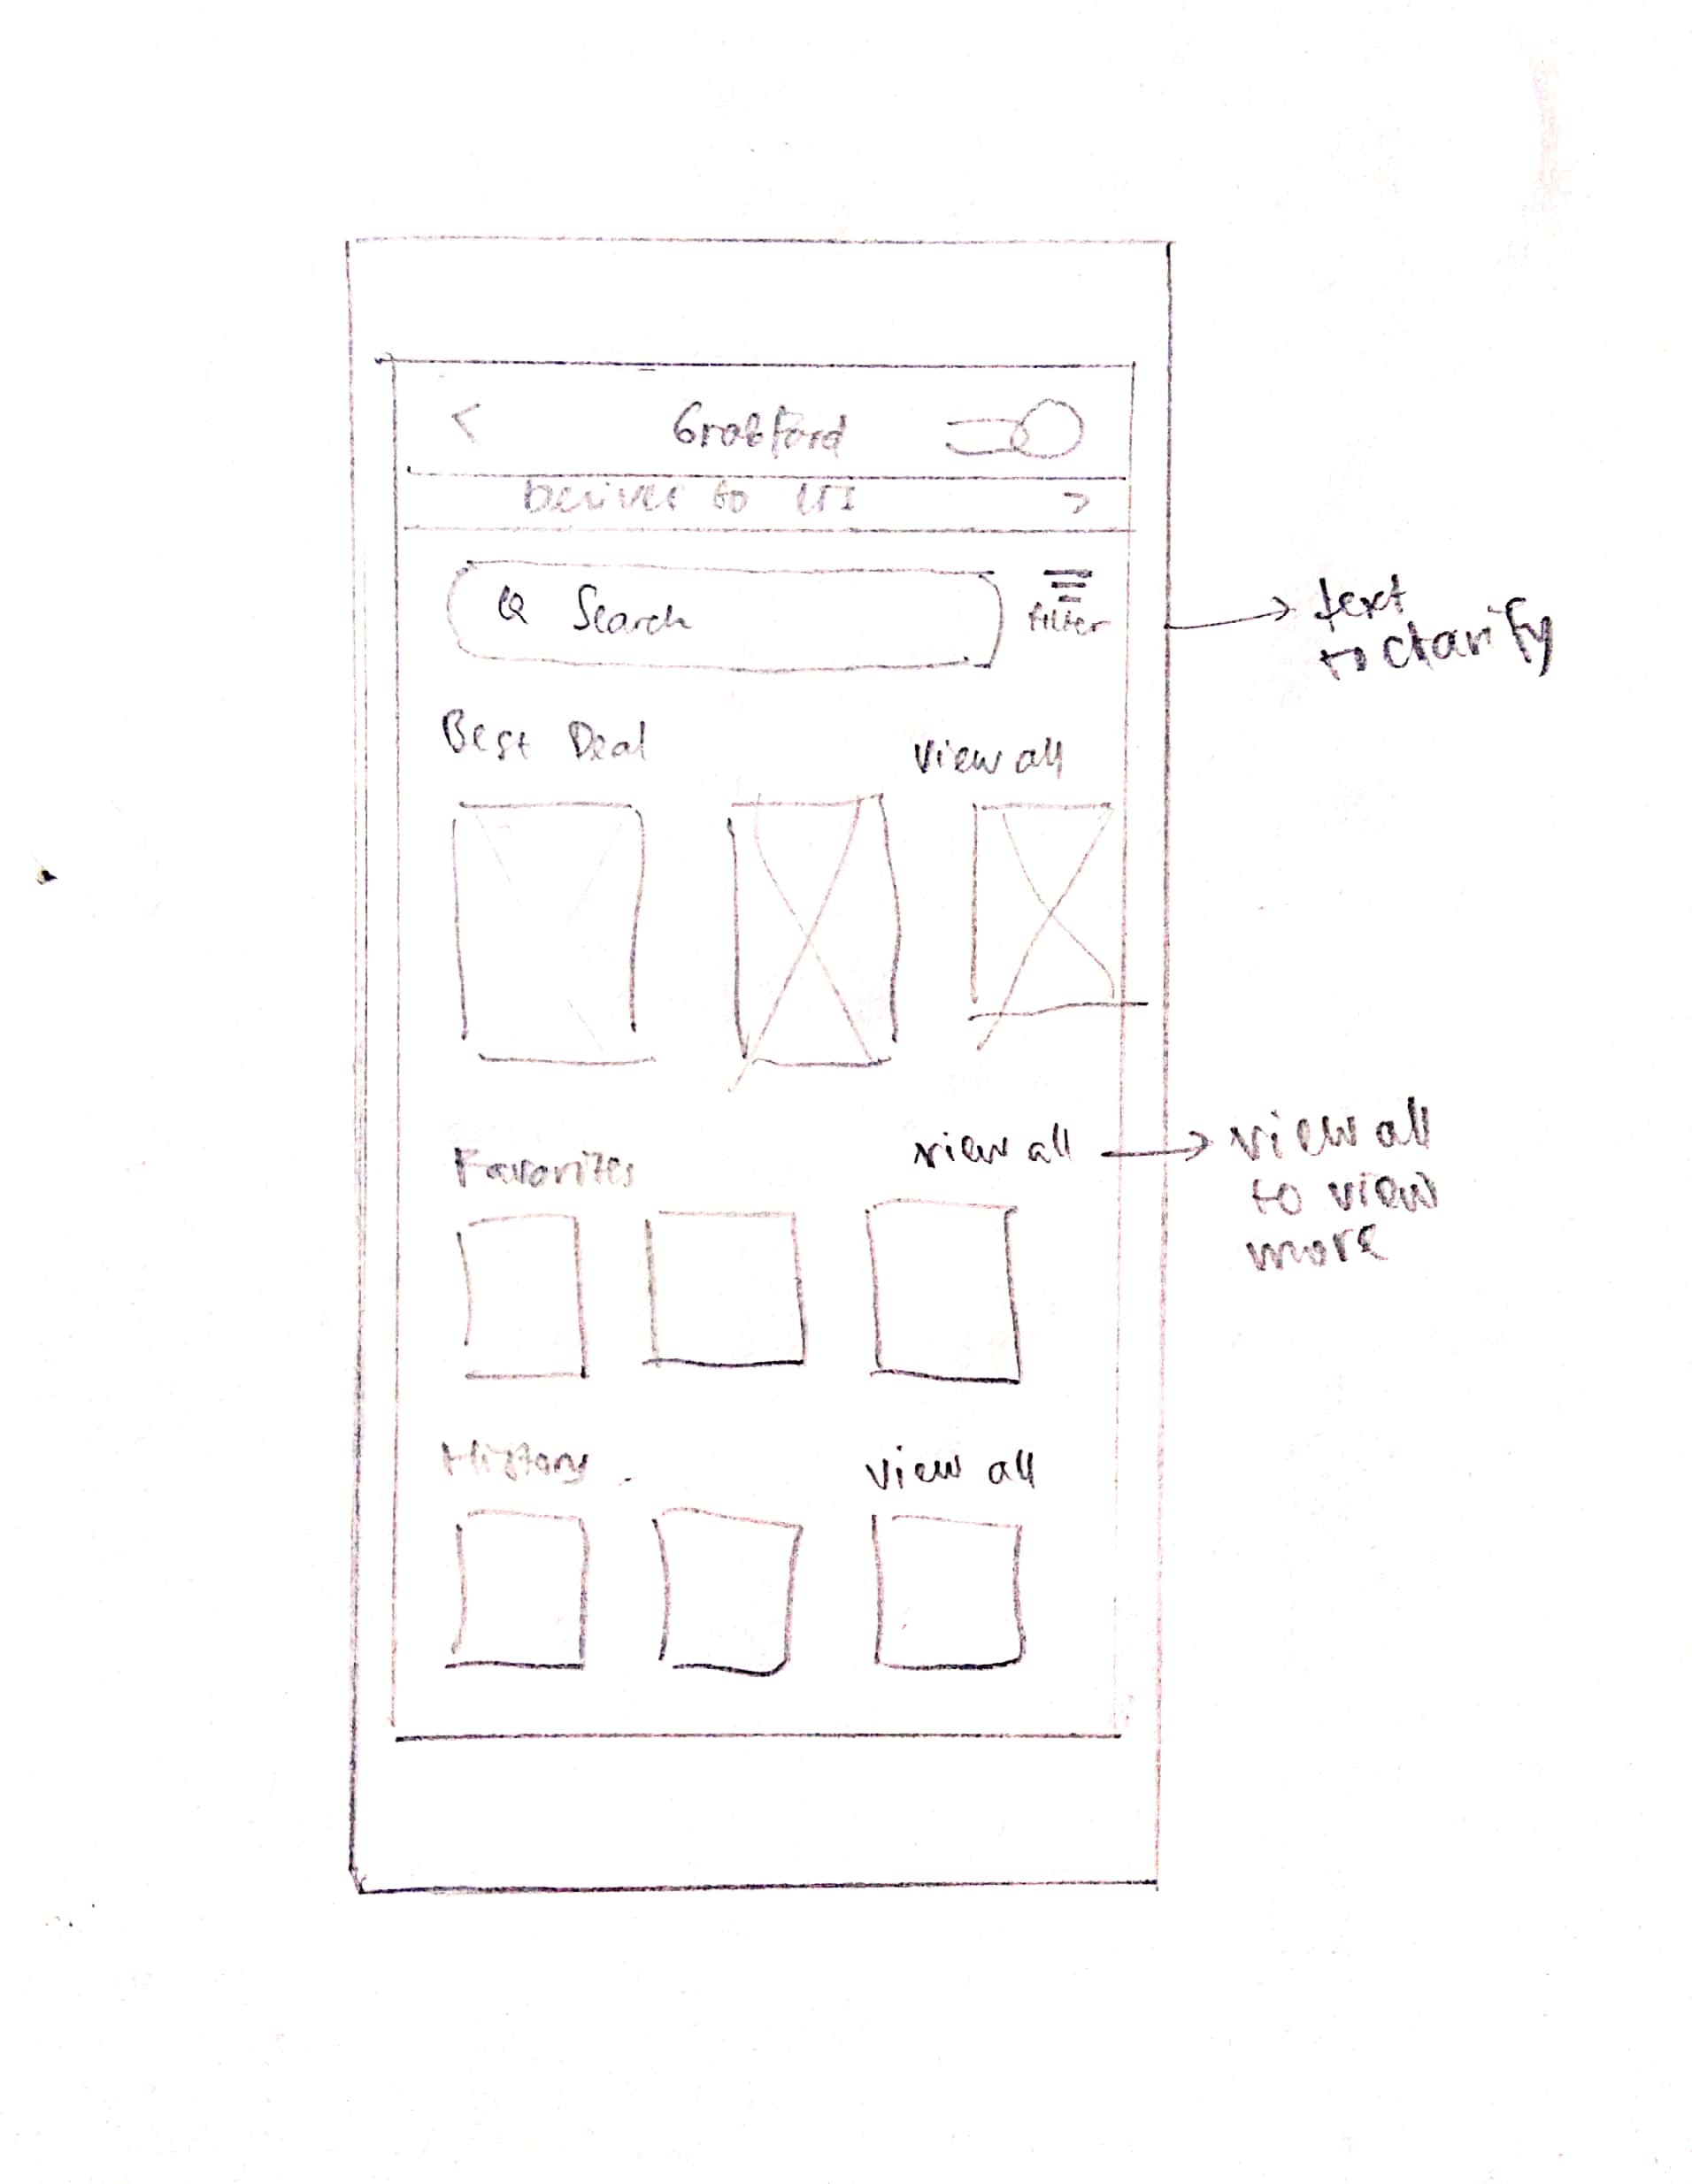 GrabFood
Deliver to UI >
Search
filter
text
to clarify
Best Deal
View all
Favorites
view all
view all
to view
more
History
View all